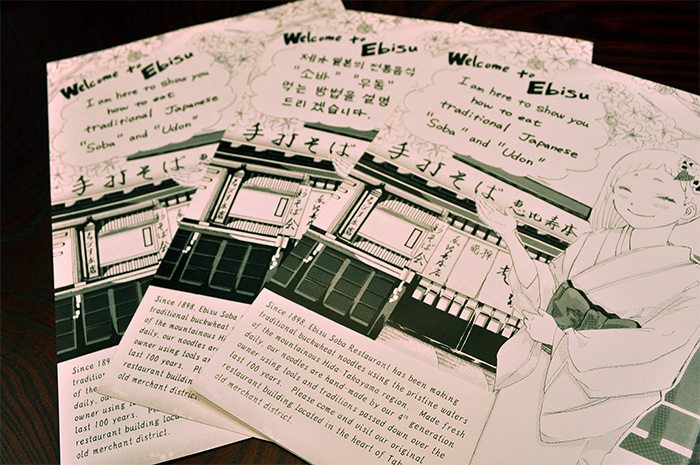 Welcome to
Ebisu
I am here to show you
how to eat
traditional Japanese
"Soba" and "Udon"
手打そば
Since 1898
of the
daily, our
owner using
last 100 years.
restaurant building
old merchant district.
Welcome to
Ebisu
제가 일본의 전통음식
"소바" "우동"
먹는 방법을 설명
드리겠습니다.
手打そば
Since 1898, Ebisu Soba
traditional buckwheat
of the mountainous Hida
daily, our noodles are
owner using tools and
last 100 years. Please
restaurant building
old merchant district.
Welcome to
Ebisu
I am here to show you
how to eat
traditional Japanese
"Soba" and "Udon"
手打そば 恵比寿店
Since 1898, Ebisu Soba Restaurant has been making
traditional buckwheat noodles using the pristine waters
of the mountainous Hida Takayama region. Made fresh
daily, our noodles are hand-made by our 4th generation
owner using tools and traditions passed down over the
last 100 years. Please come and visit our original
restaurant building located in the heart of
old merchant district.